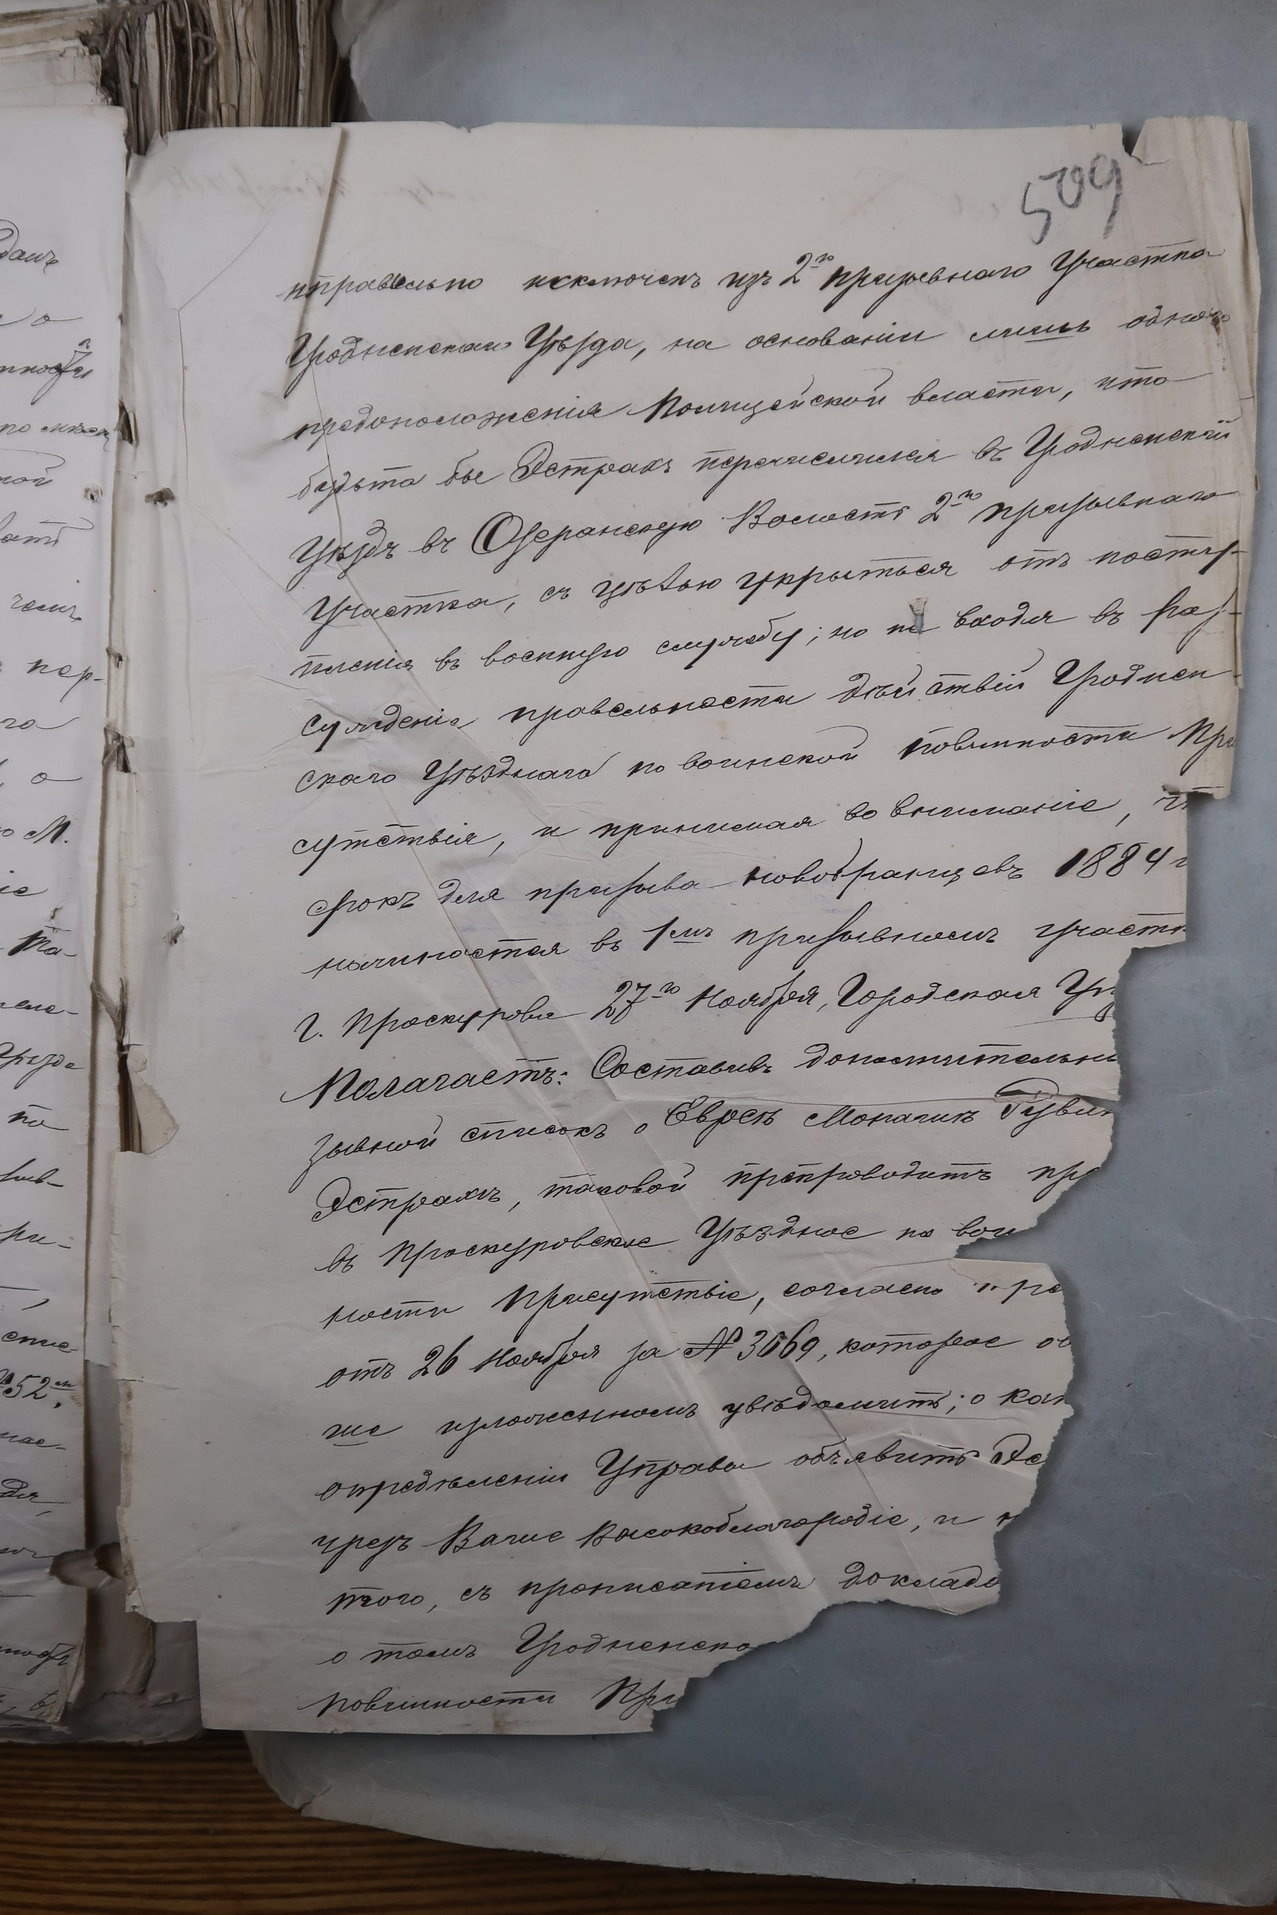 509
нправельно исключенъ изъ 2го призывнаго Участка
Гродненскаго Уѣзда, на основаніи лишь одного
предположенія Полицейской власти, что
будьто бы Эстрахъ перечислился въ Гродненскій
Уѣздъ въ Озеранскую Волость 2го призывнаго
Участка, съ цѣлью укрыться отъ посту-
пленія въ военную службу; но не входя въ раз-
сужденіе правельности дѣйствій Гроднен-
скаго Уѣзднаго по воинской повинности При
сутствія, и принимая во вниманіе, чт
срокъ для призыва новобранцевъ 1884 г
начинается въ 1мъ призывномъ участк
г. Проскурова 27го Ноября, Городская Уп
Полагаетъ: Составивъ дополнительны
зывной списокъ о Евреѣ Мошаликъ Рувин
Эстрахъ, таковой препроводить пр
въ Проскуровское Уѣздное по вои
ности Присутствіе, согласно пре
отъ 26 Ноября за № 3669, которое о
ше изложенномъ увѣдомить; о как
опредѣленіи Управы объявить Эс
чрезъ Ваше Высокоблагородіе, и
того, съ прописаніемъ доклада
о томъ Гродненско
повинности При